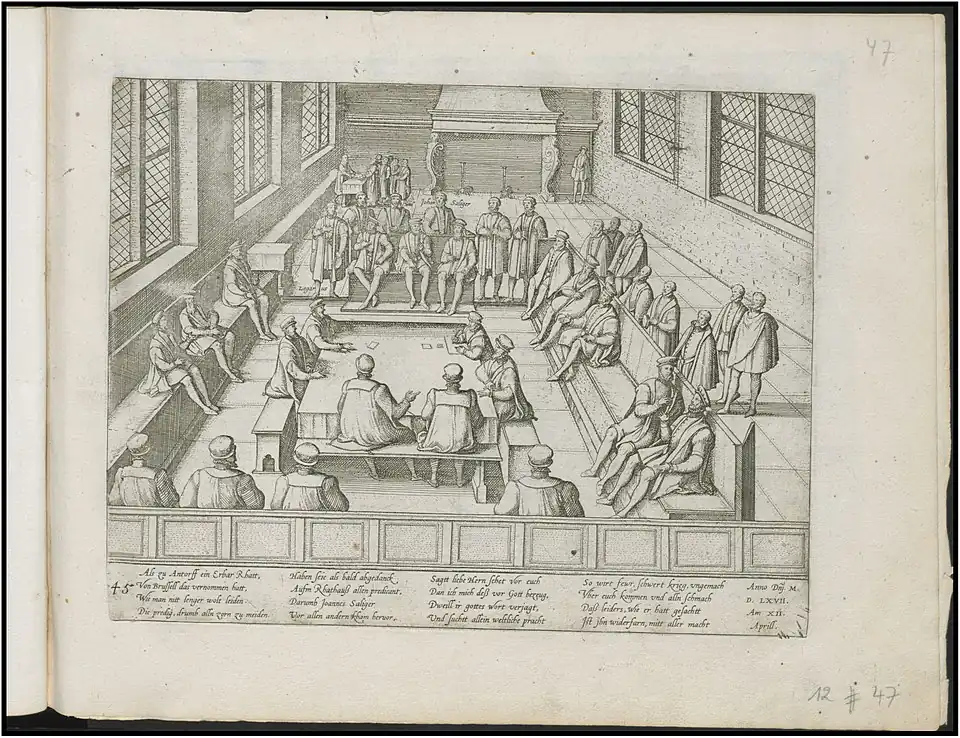 47
Johan Saliger
45
Als zu Antorff ein Erbar Rhatt,
Von Brüssell das vernommen hatt,
Wie man nitt lenger wolt leiden
Die predig, drumb alln zorn zu meiden.
Haben seie als bald abgedanck
Aufm Rhathauß allen predicant.
Darumb Joannes Saliger
Vor allen andern kham hervor,
Sagtt liebe Hern sehet vor euch
Dan ich mich deß vor Gott bezeug,
Dweill ir gottes wort verjagt,
Und suchtt allein weltliche pracht
So wirt feur, schwert krieg, ungemach
Vber euch kommen und alln schmach
Daß leiders, wie er hatt gesachtt
Ist jhn widerfarn, mitt aller macht
Anno Dñj. M.
D. LXVII.
Am XII.
Aprill.
12 # 47